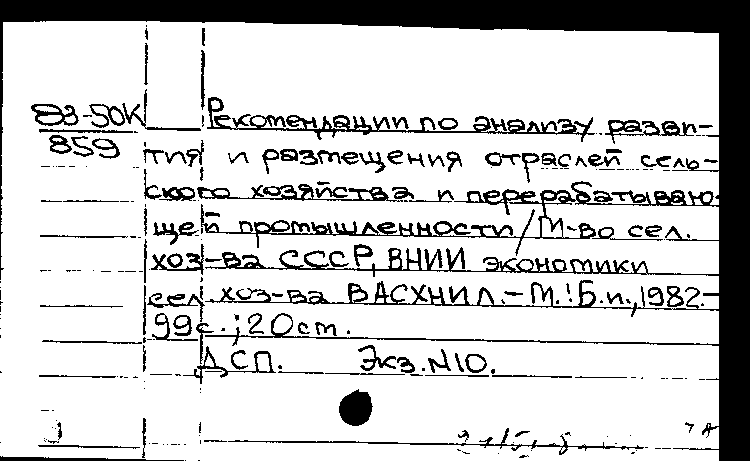 83-50К Рекомендации по анализу разви-
859 тия и размещения отраслей сель-
ского хозяйства и перерабатываю-
щей промышленности / М-во сел.
хоз-ва СССР, ВНИИ экономики
сел. хоз-ва ВАСХНИЛ. - М.: Б.и., 1982. -
99с.; 20 cm.
ДСП. Экз. N10.